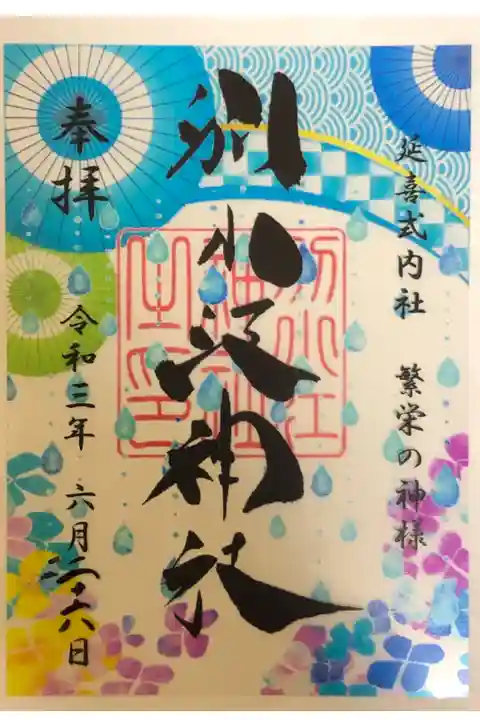 延喜式内社 繁栄の神様
別小江神社
別小江
神社
之印
奉拝
令和三年 六月二十八日